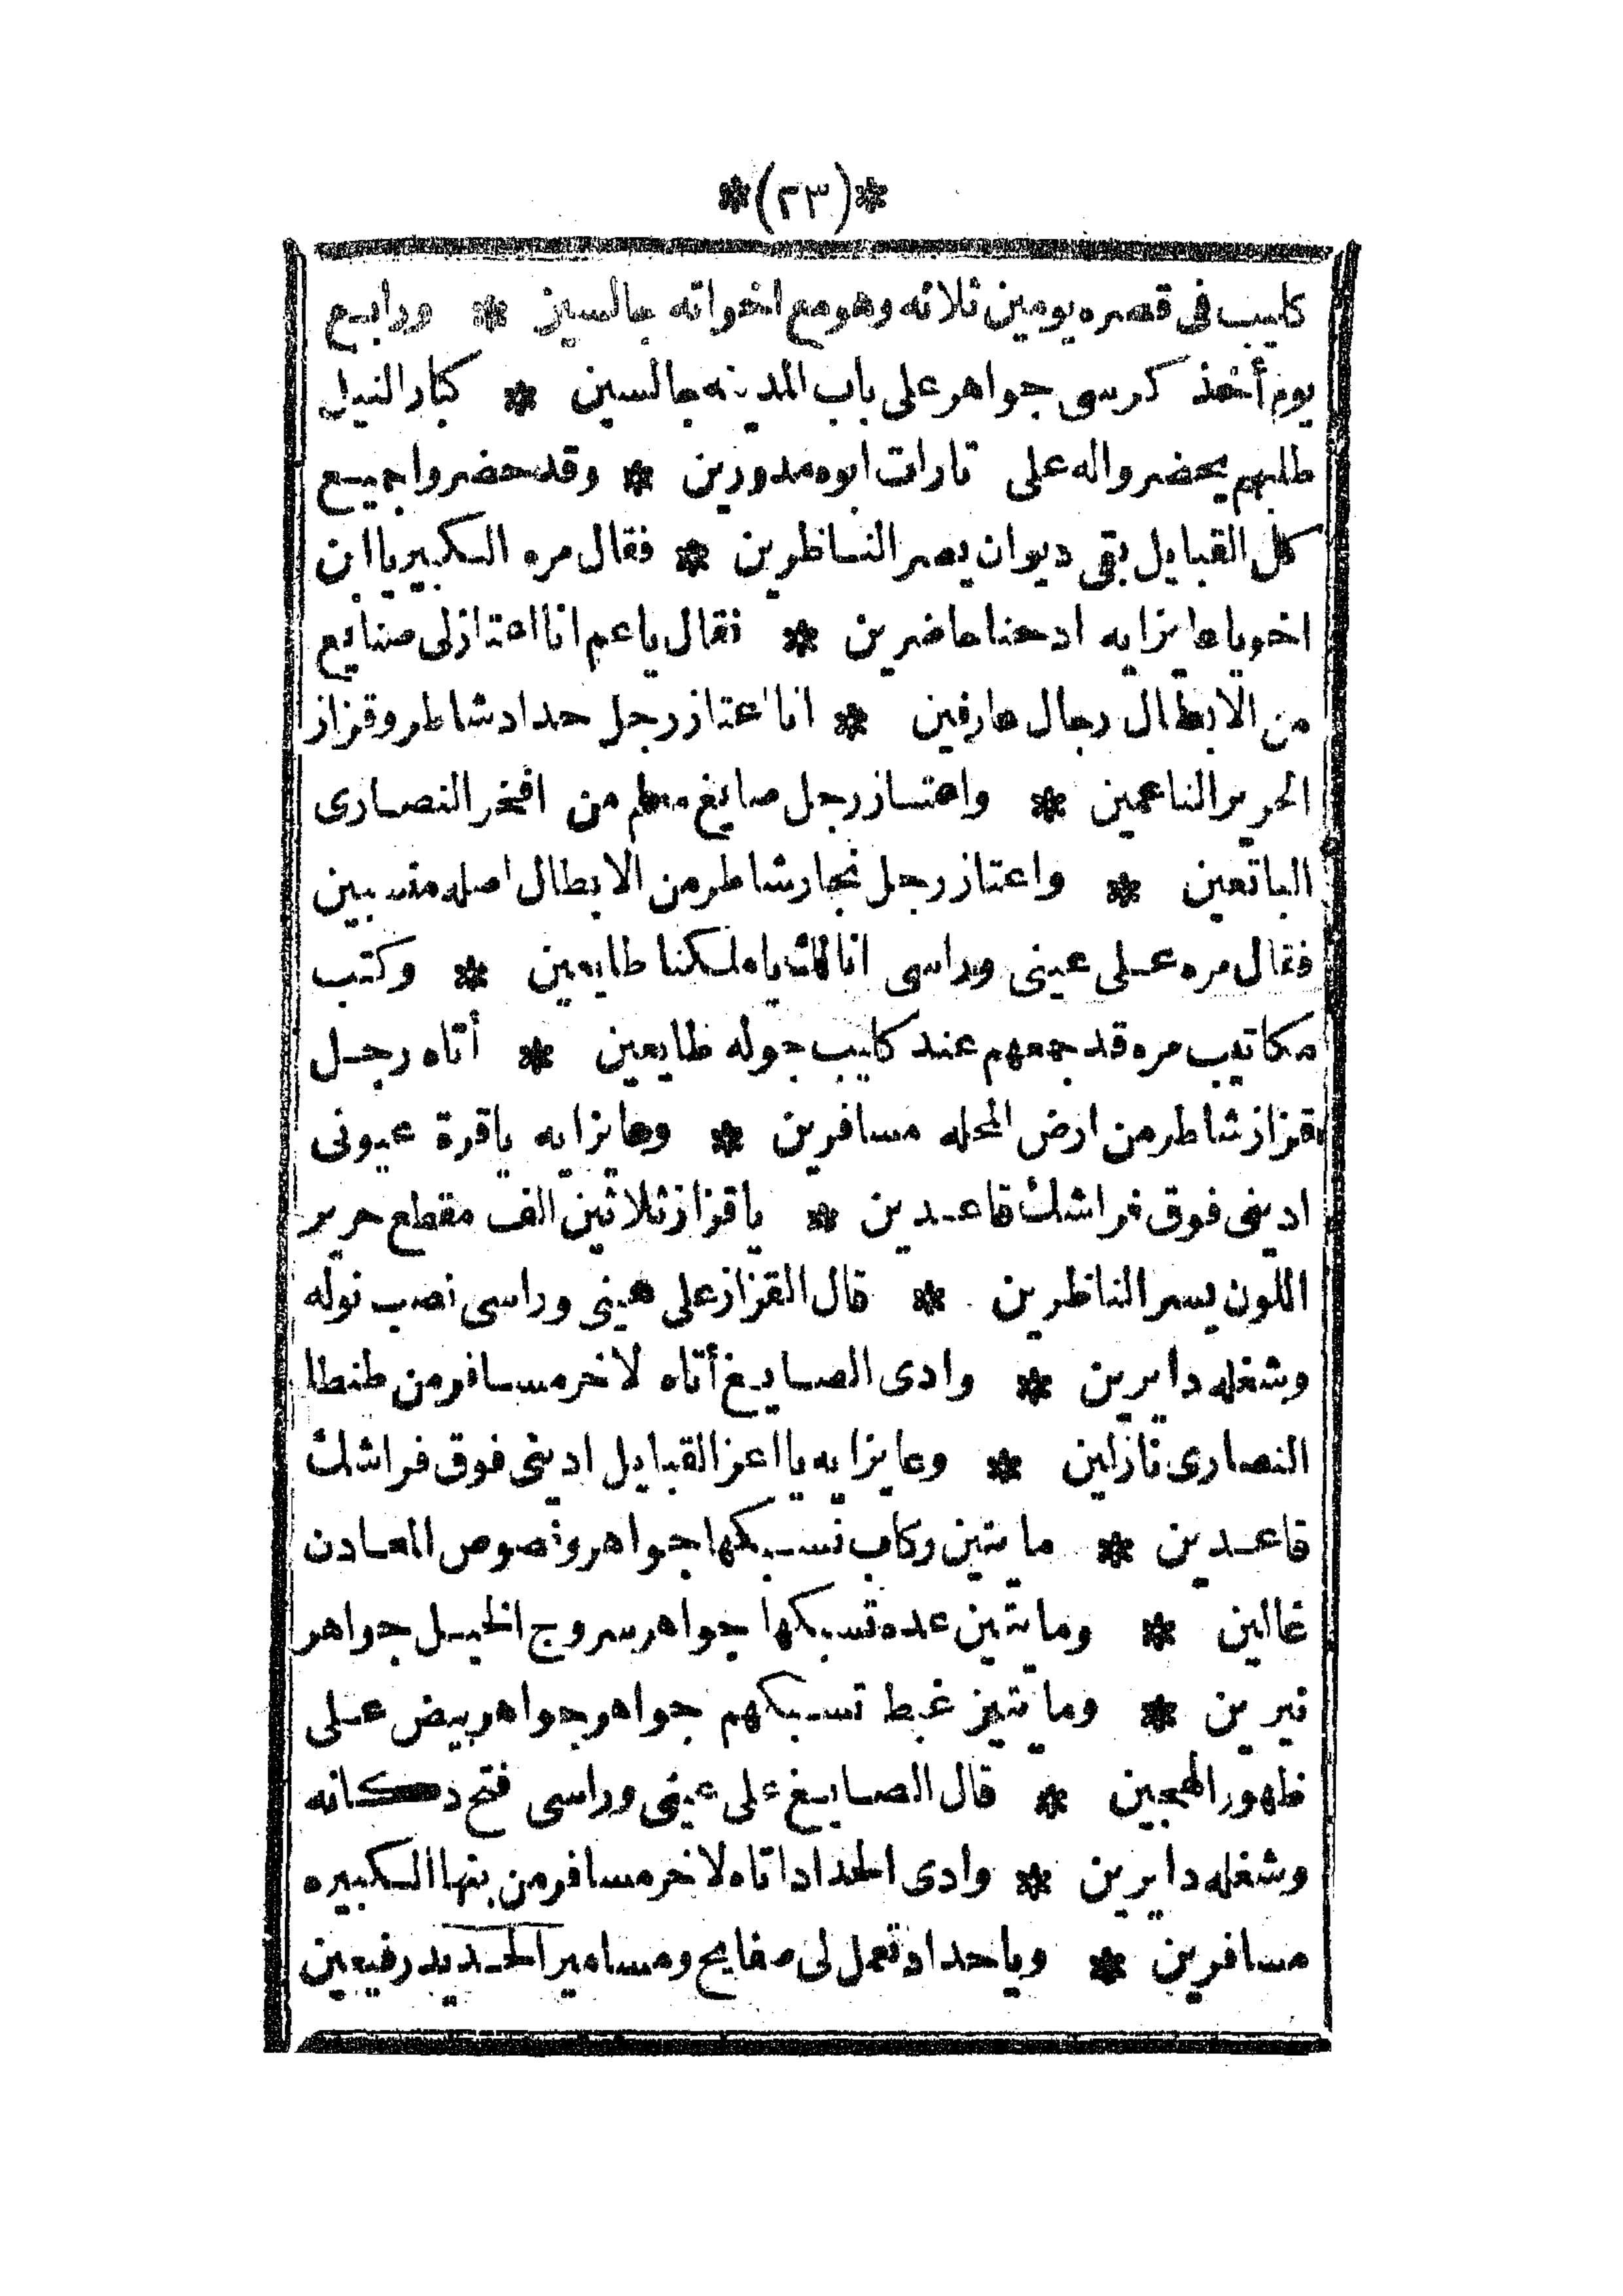 *(٢٣)*
كليب فى قصره يومين ثلاثه وهو مع اخواته جالسين * ورابع
يوم أخذ كرسى جواهر على باب المدينه جالسين * كبار النيل
طلبهم يحضروا له على تارات ابوه مدورين * وقد حضروا جميع
كل القبايل بقى ديوان يسر الناظرين * فقال مره الكبير يا ابن
اخويا عايز ايه ادحنا حاضرين * فقال يا عم انا اعتاز لى صنايع
من الابطال رجال عارفين * انا اعتاز رجل حداد شاطر وقزاز
الحرير الناعمين * واعتاز رجل صايغ معلم من افخر النصارى
الباتعين * واعتاز رجل نجار شاطر من الابطال اصله مقسبين
فقال مره على عينى وراسى انا لك يا ملكنا طايعين * وكتب
مكاتيب مره قد جمعهم عند كليب جوله طايعين * أتاه رجل
قزاز شاطر من ارض المحله مسافرين * وعايز ايه ياقرة عيونى
ادينى فوق فراشك قاعدين * ياقزاز ثلاثين الف مقطع حرير
اللون يسر الناظرين * قال القزاز على عينى وراسى نصب نوله
وشغله دايرين * وادى الصايغ أتاه لاخر مسافر من طنطا
النصارى نازلين * وعايز ايه يا اعز القبايل ادينى فوق فراشك
قاعدين * مايتين ركاب تسبكها جواهر وفصوص المعادن
غالين * ومايتين عده تسبكها جواهر سروج الخيل جواهر
نيرين * ومايتين غبط تسبكهم جواهر جواهر بيض على
ظهور الهجين * قال الصايغ على عينى وراسى فتح دكانه
وشغله دايرين * وادى الحداد اتاه لاخر مسافر من بنها الكبيره
مسافرين * وياحداد تعمل لى صفايح ومسامير الحديد رفيعين